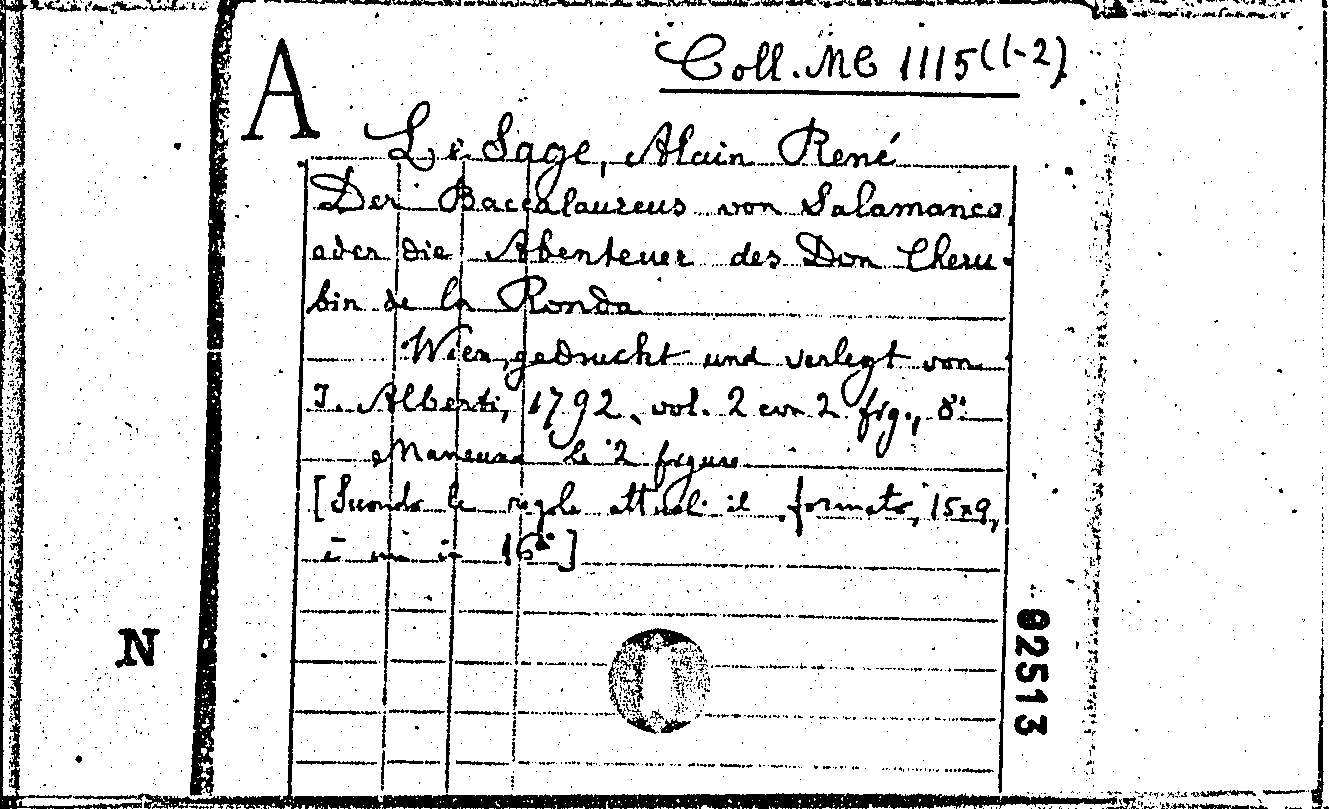 A
Coll. MC 1115 (1-2)
Le Sage, Alain René
Der Baccalaureus von Salamanca,
oder die Abenteuer des Don Cheru-
bin de la Ronda
Wien, gedruckt und verlegt von
I. Alberti, 1792, vol. 2 con 2 frg., 8°
Mancano le 2 figure
[Secondo le regole attuali il formato, 15x9,
è in 16°]
N
02513